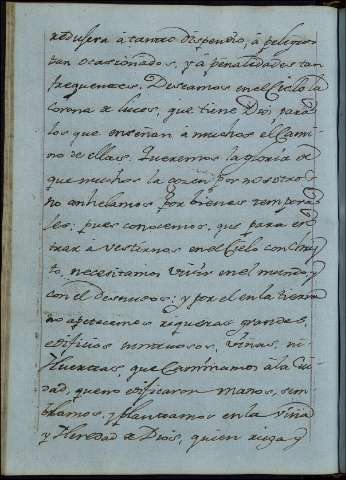 reduxera à tantos dispendio, à peligros
tan ocasionados, y à penalidades tan
frequentes. Deseamos en el Cielo la
Corona de luces, que tiene Dios para
los que enseñan à muchos el Cami
no de ellas. Queremos la gloria de
que muchos la gozen por nosotros
no anhelamos por bienes tempora
les; pues conocemos, que para en
trar à vestirnos en el Cielo con Chris
to, necesitamos vivir en el mundo
con el desnudos; y por el en la tierra
no apetecemos riquezas grandes,
edificios suntuosos, Viñas, ni
Huertas, que Caminamos à la Ciu
dad, que no edificaron manos, sem
bramos, y plantamos en la viña
y Heredad de Dios, quien riega y